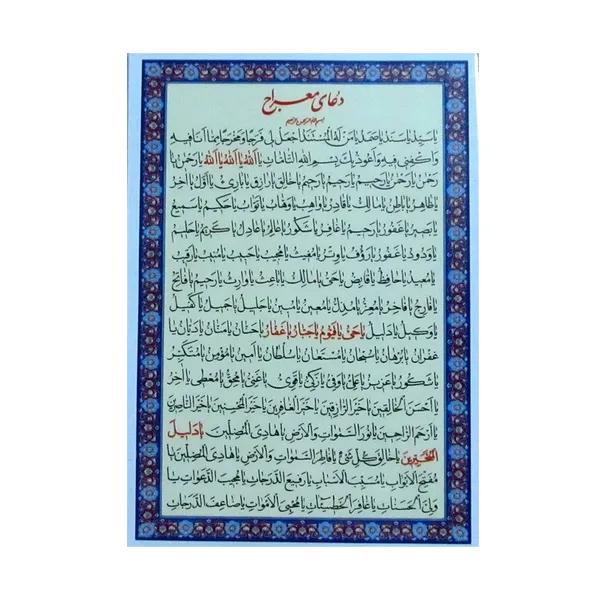 دعای معراج
بسم الله الرحمن الرحیم
یا سَیِّدُ یا سَنَدُ یا صَمَدُ یا مَنْ لَهُ الْمُسْتَنَدُ اجْعَلْ لی فَرَجًا وَ مَخْرَجًا مِمّا اَنَا فیهِ
وَ اکْفِنی فیهِ وَ اَعُوذُ بِکَ بِسْمِ اللهِ التّامّاتِ یا اَللهُ یا اَللهُ یا اَللهُ یا رَحْمنُ یا
رَحْمنُ یا رَحْمنُ یا رَحیمُ یا رَحیمُ یا رَحیمُ یا خالِقُ یا رازِقُ یا بارِیُ یا اَوَّلُ یا آخِرُ
یا ظاهِرُ یا باطِنُ یا مالِکُ یا قادِرُ یا واهِبُ یا وَهّابُ یا تَوّابُ یا حَکیمُ یا سَمیعُ
یا بَصیرُ یا غَفُورُ یا رَحیمُ یا غافِرُ یا شَکُورُ یا عالِمُ یا عادِلُ یا کَریمُ یا حَلیمُ
یا وَدُودُ یا غَفُورُ یا رَؤُفُ یا وِتْرُ یا مُغیثُ یا مُجیبُ یا حَبیبُ یا مُنیبُ یا رَقیبُ
یا مُعیدُ یا حافِظُ یا قابِضُ یا حَیُّ یا مالِکُ یا باعِثُ یا وارِثُ یا رَحیمُ یا فاتِحُ
یا فارِجُ یا فاخِرُ یا مُعِزُّ یا مُذِلُّ یا مُعینُ یا مُبینُ یا جَلیلُ یا جَمیلُ یا کَفیلُ
یا وَکیلُ یا دَلیلُ یا حَیُّ یا قَیُّومُ یا جَبّارُ یا غَفّارُ یا حَنّانُ یا مَنّانُ یا دَیّانُ یا
غُفْرانُ یا بُرْهانُ یا سُبْحانُ یا مُسْتَعانُ یا سُلْطانُ یا اَمینُ یا مُؤْمِنُ یا مُتَکَبِّرُ
یا شَکُورُ یا عَزیزُ یا عَلِیُّ یا وَفِیُّ یا زَکِیُّ یا قَوِیُّ یا غَنِیُّ یا مُحِقُّ یا مُعْطی یا آخِرُ
یا اَحْسَنَ الْخالِقینَ یا خَیْرَ الرّازِقینَ یا خَیْرَ الْغافِرینَ یا خَیْرَ الْمُحْسِنینَ یا خَیْرَ النّاصِرینَ
یا اَرْحَمَ الرّاحِمینَ یا نُورَ السَّمواتِ وَ الْاَرْضِ یا هادِیَ الْمُضِلّینَ یا دَلیلَ
الْمُتَحَیِّرینَ یا خالِقَ کُلِّ شَیْءٍ یا فاطِرَ السَّمواتِ وَ الْاَرْضِ یا هادِیَ الْمُضِلّینَ یا
مُفَتِّحَ الْاَبْوابِ یا مُسَبِّبَ الْاَسْبابِ یا رَفیعَ الدَّرَجاتِ یا مُجیبَ الدَّعَواتِ یا
وَلِیَّ الْحَسَناتِ یا غافِرَ الْخَطیئاتِ یا مُحْیِیَ الْاَمْواتِ یا ضاعِفَ الدَّرَجاتِ